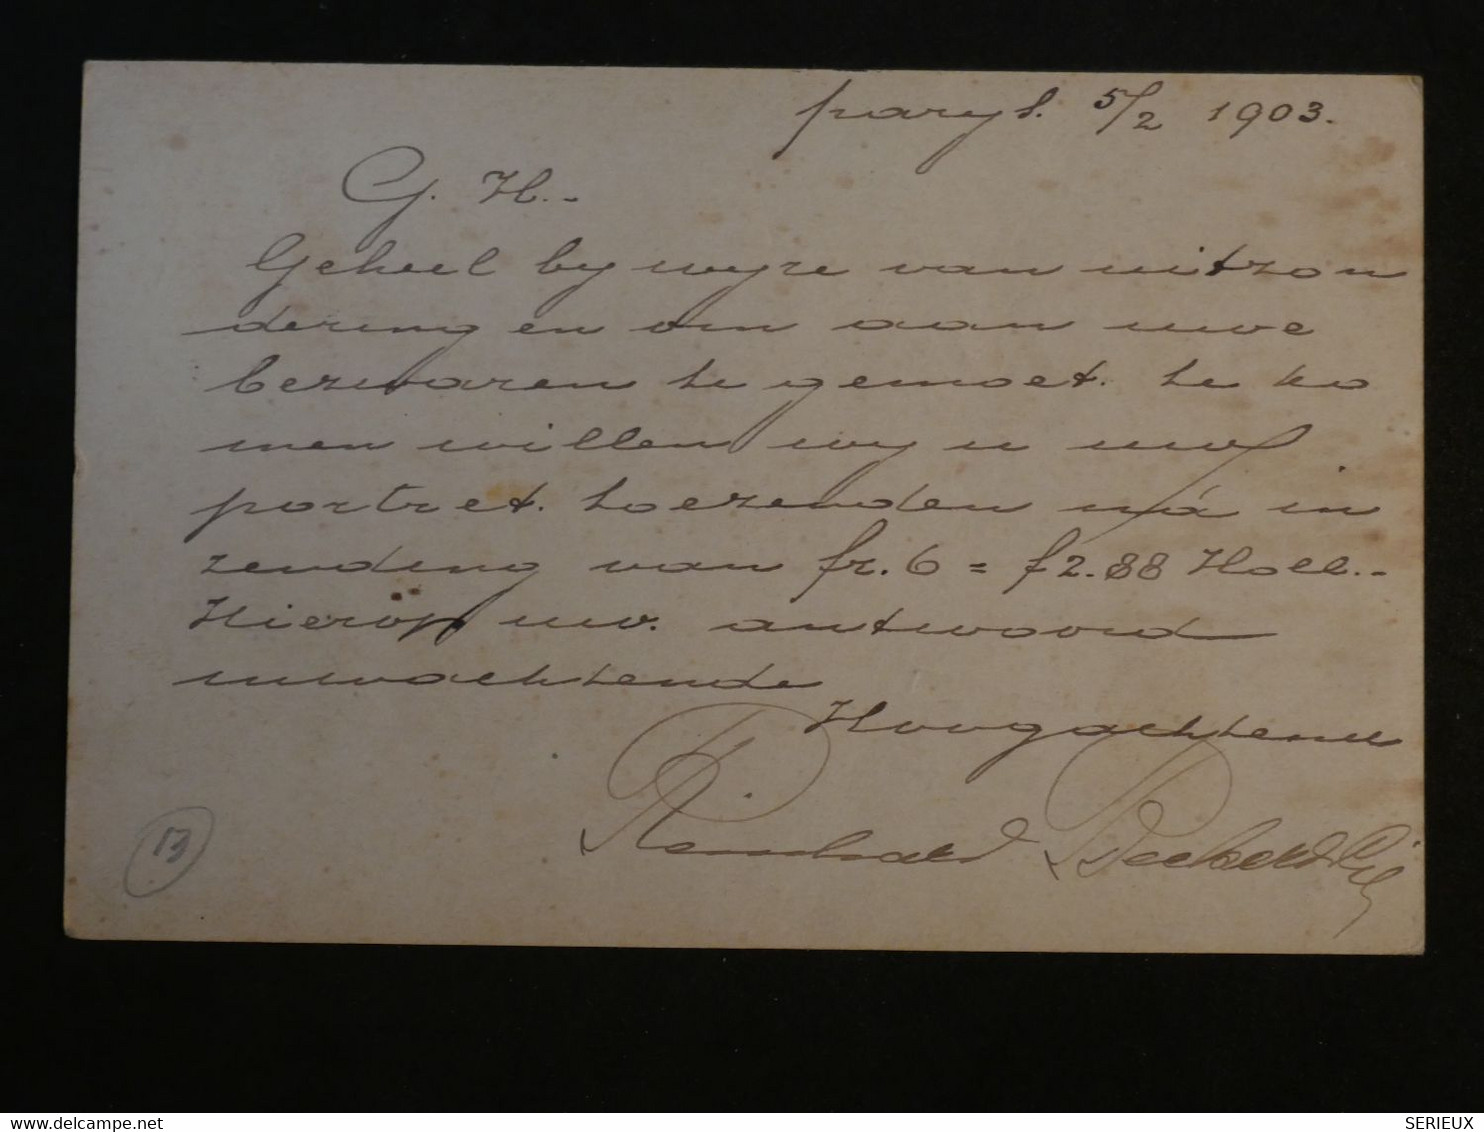 parys. 5/2 1903.
G. H..
Geheel by wyze van uitzon
dering en om aan uwe
bezwaren te gemoet. te ko
men willen wy u uw
portret. toezenden ná in
zending van fr. 6 = f 2.88 Holl..
Hierop uw. antwoord
inwachtende
Hoogachtend
Reinhard
13
www.delcampe.net
SERIEUX